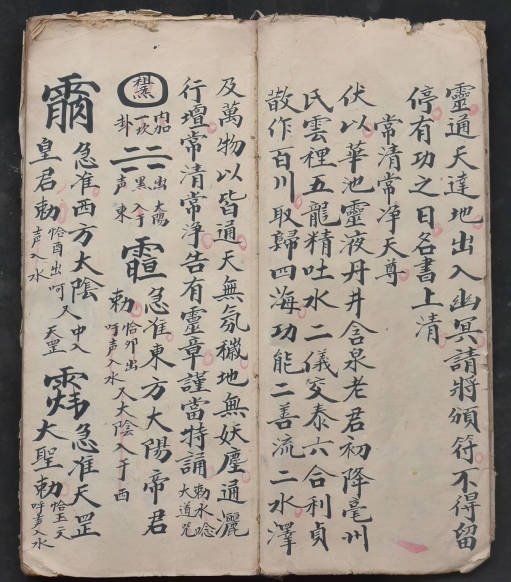 靈通天達地出入幽冥請將頒符不得留
停有功之日名書上清
常清常净天尊
伏以華池靈液丹井含泉老君初降亳州
氏雲裡五龍精吐水二儀交泰六合利貞
散作百川取歸四海功能二善流二水澤
及萬物以皆通天無氛穢地無妖塵通灑
行壇常清常淨告有靈章謹當持誦
勅水唸
大道咒
内加
一坎
卦
二二
出太陽
黑入于
声東
急准東方大陽帝君
勅
恰卯出
呼声入水
又大陰入于西
急准西方太陰
皇君勅
恰酉出呵
声入水
又中入
天罡
急准天罡
大聖勅
恰玉文
呼声入水